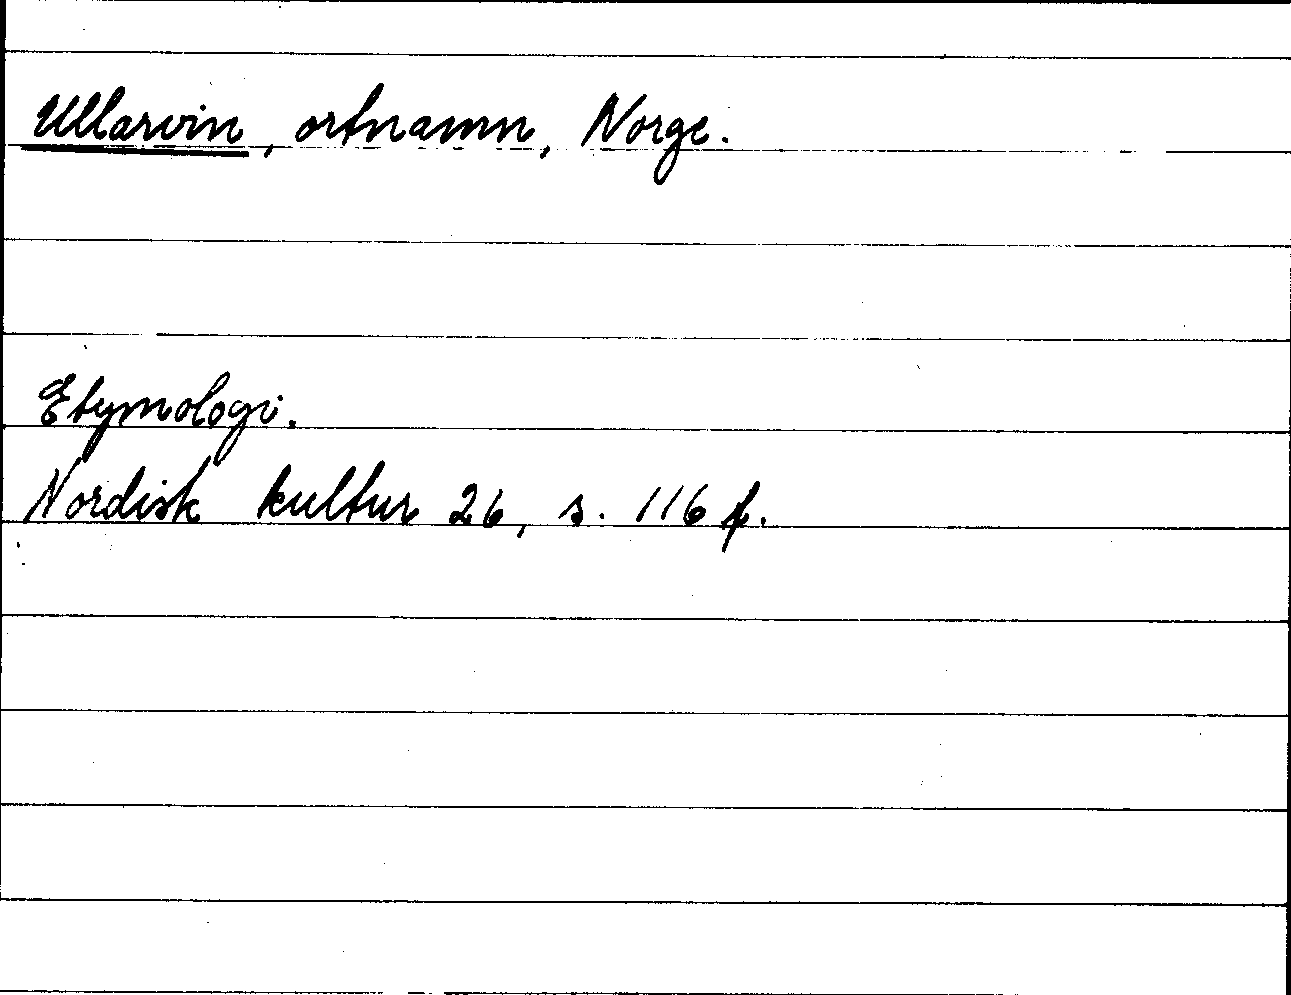 Ullarvin, ortnamn, Norge.
Etymologi.
Nordisk kultur 26, s. 116 f.